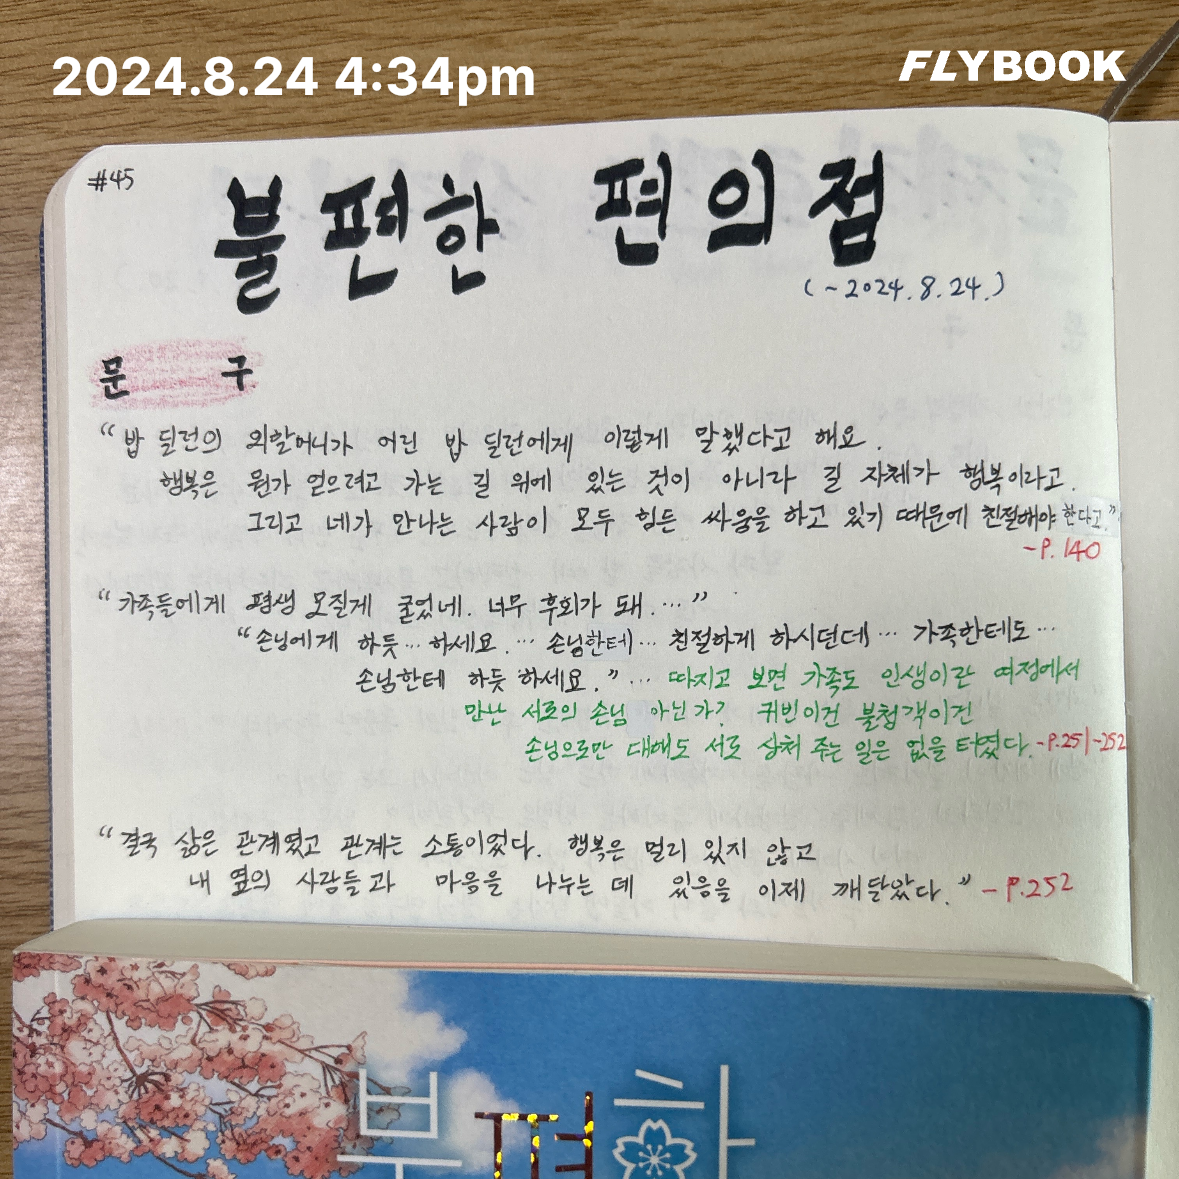 2024.8.24 4:34pm
FLYBOOK
#45
불편한 편의점
(~2024.8.24.)
문 구
“밥 딜런의 외할머니가 어린 밥 딜런에게 이렇게 말했다고 해요.
행복은 뭔가 얻으려고 가는 길 위에 있는 것이 아니라 길 자체가 행복이라고.
그리고 네가 만나는 사람이 모두 힘든 싸움을 하고 있기 때문에 친절해야 한다고.”
-P.140
“가족들에게 평생 모질게 굴었네. 너무 후회가 돼.…”
“손님에게 하듯…하세요.… 손님한테… 친절하게 하시던데… 가족한테도…
손님한테 하듯 하세요.”… 따지고 보면 가족도 인생이란 여정에서
만난 서로의 손님 아닌가? 귀빈이건 불청객이건
손님으로만 대해도 서로 상처 주는 일은 없을 터였다.-P.251-252
“결국 삶은 관계였고 관계는 소통이었다. 행복은 멀리 있지 않고
내 옆의 사람들과 마음을 나누는 데 있음을 이제 깨달았다.” -P.252
불편한